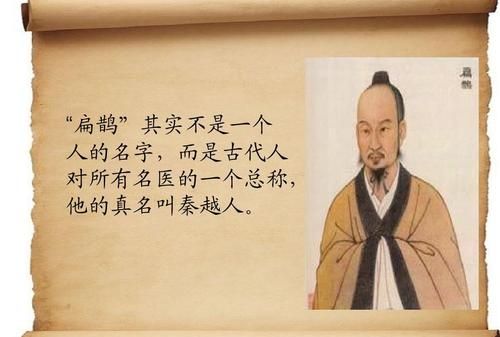 “扁鹊”其实不是一个
人的名字，而是古代人
对所有名医的一个总称，
他的真名叫秦越人。
扁鹊